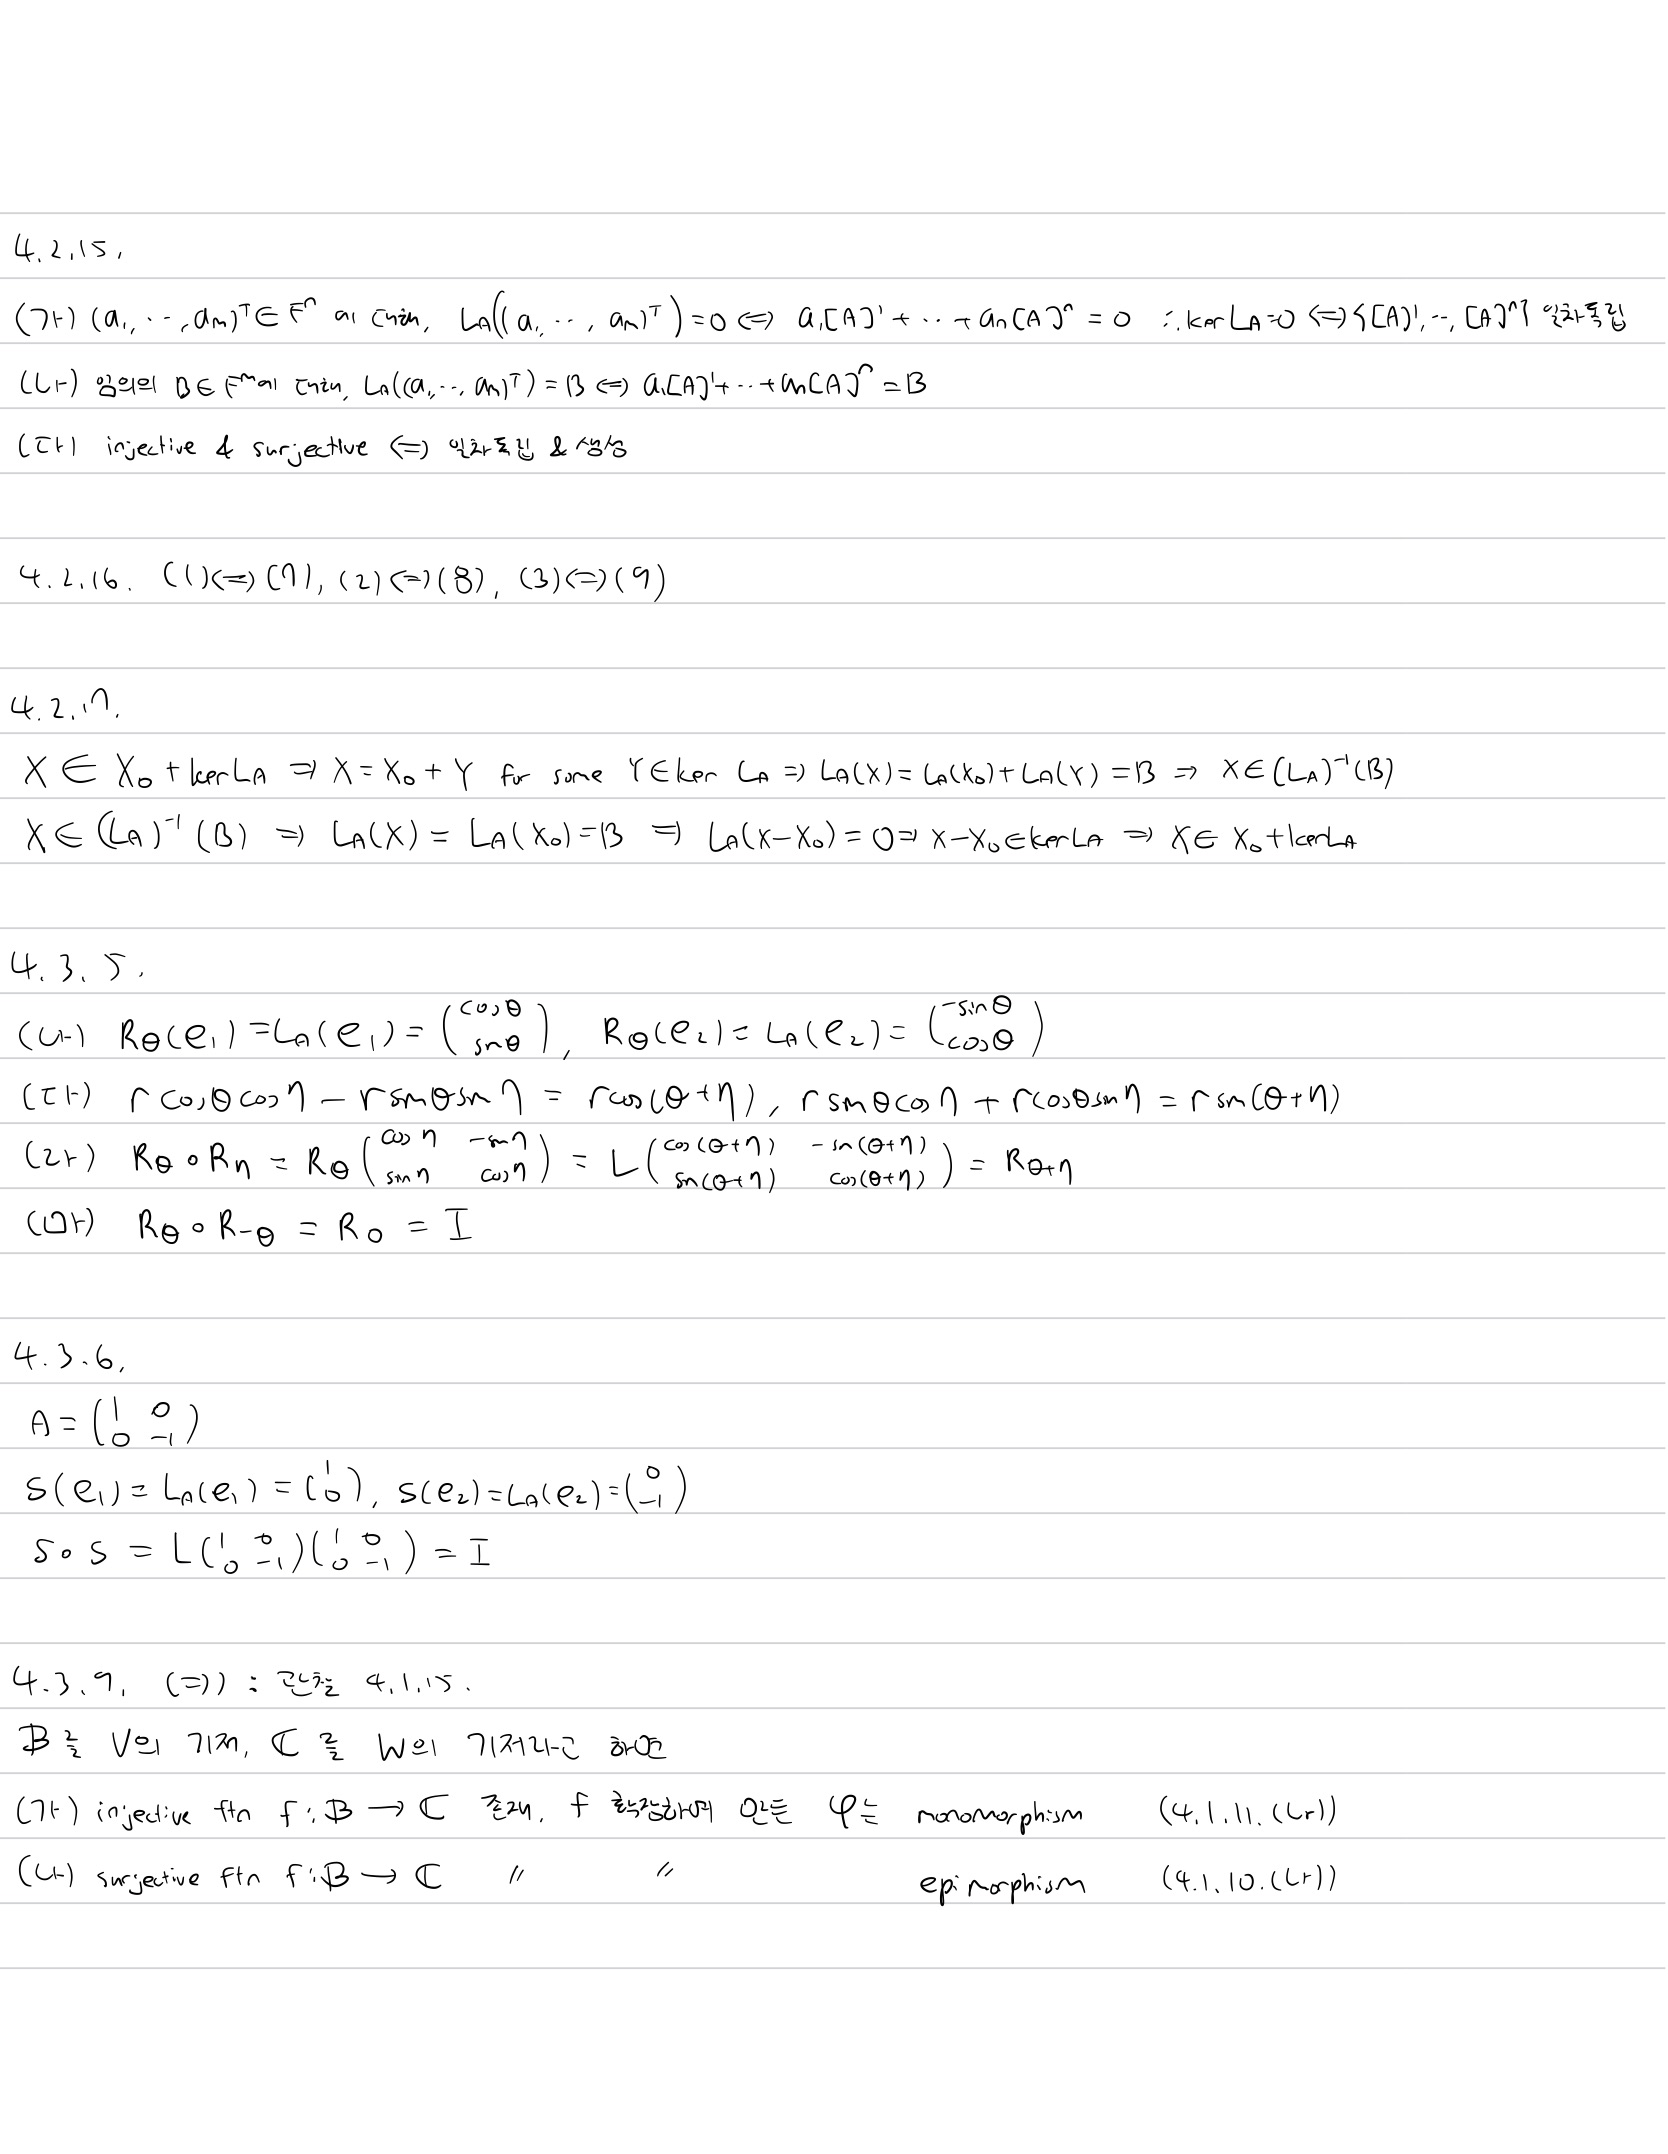 4.2.15.
(가) (a₁, ⋯, aₙ)ᵀ ∈ Fⁿ에 대해, L_A((a₁, ⋯, aₙ)ᵀ) = 0 ⇔ a₁[A]¹ + ⋯ + aₙ[A]ⁿ = 0 ∴ ker L_A = 0 ⇔ {[A]¹, ⋯, [A]ⁿ} 일차독립
(나) 임의의 B ∈ Fᵐ에 대해, L_A((a₁, ⋯, aₙ)ᵀ) = B ⇔ a₁[A]¹ + ⋯ + aₙ[A]ⁿ = B
(다) injective & surjective ⇔ 일차독립 & 생성
4.2.16. (1)⇔(7), (2)⇔(8), (3)⇔(9)
4.2.17.
X ∈ X₀ + ker L_A ⇒ X = X₀ + Y for some Y ∈ ker L_A ⇒ L_A(X) = L_A(X₀) + L_A(Y) = B ⇒ X ∈ (L_A)⁻¹(B)
X ∈ (L_A)⁻¹(B) ⇒ L_A(X) = L_A(X₀) = B ⇒ L_A(X−X₀) = 0 ⇒ X−X₀ ∈ ker L_A ⇒ X ∈ X₀ + ker L_A
4.3.5.
(나) R_θ(e₁) = L_A(e₁) = (cosθ; sinθ), R_θ(e₂) = L_A(e₂) = (−sinθ; cosθ)
(다) r cosθ cosη − r sinθ sinη = r cos(θ+η), r sinθ cosη + r cosθ sinη = r sin(θ+η)
(라) R_θ ∘ R_η = R_θ (cosη −sinη; sinη cosη) = L (cos(θ+η) −sin(θ+η); sin(θ+η) cos(θ+η)) = R_θ+η
(마) R_θ ∘ R_−θ = R₀ = I
4.3.6.
A = (1 0; 0 −1)
S(e₁) = L_A(e₁) = (1; 0), S(e₂) = L_A(e₂) = (0; −1)
S ∘ S = L (1 0; 0 −1)(1 0; 0 −1) = I
4.3.9. (⇒) : 관찰 4.1.15.
𝔅를 V의 기저, ℂ를 W의 기저라고 하면
(가) injective ftn f : 𝔅 → ℂ 존재. f 확장하여 만든 φ는 monomorphism (4.1.11.(나))
(나) surjective ftn f : 𝔅 → ℂ 〃 〃 epimorphism (4.1.10.(나))